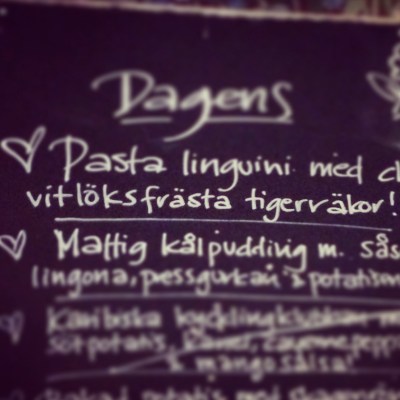 Dagens
Pasta linguini med
vitlöksfrästa tigerräkor!
Mattig kålpudding m. sås
lingona, pressgurka & potatismos
Karibiska kycklingklubbor
sötpotatis,
& mangosalsa!
potatis med